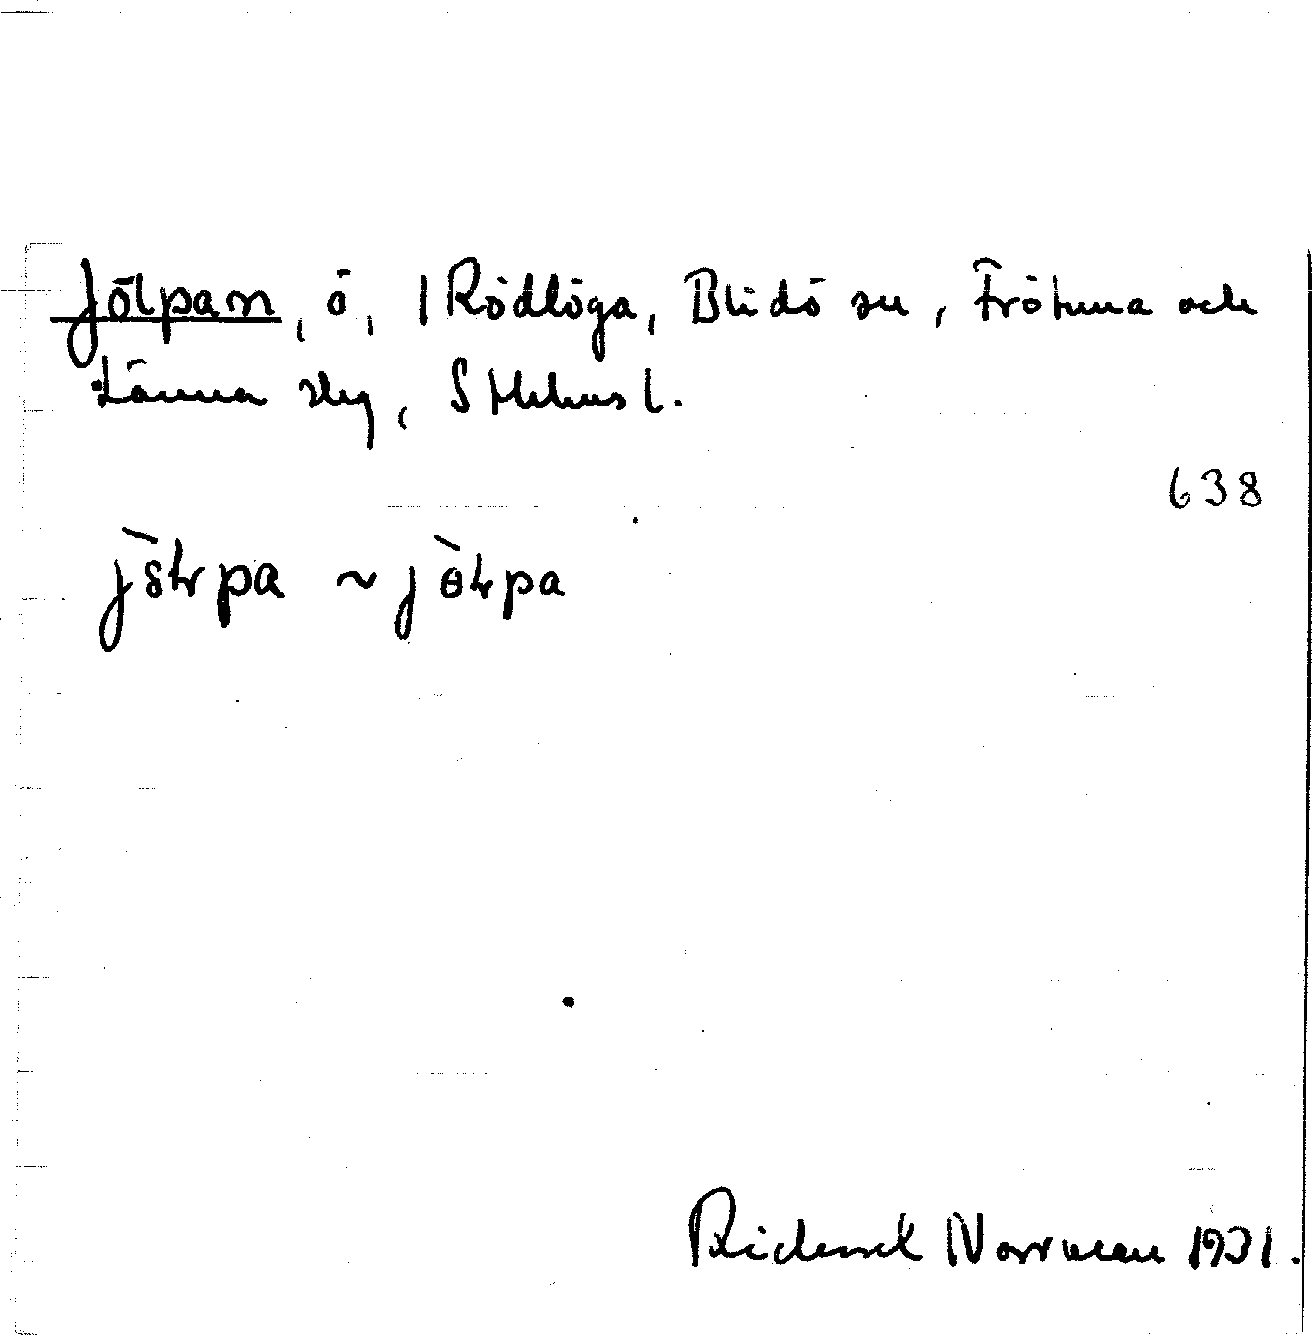 Jölpan, ö, I Rödlöga, Blidö sn, Frötuna och
Länna slg, Sthlms l.
638
jö̀lpa ~ jɵ̀lpa
Rickard Norrman 1931.